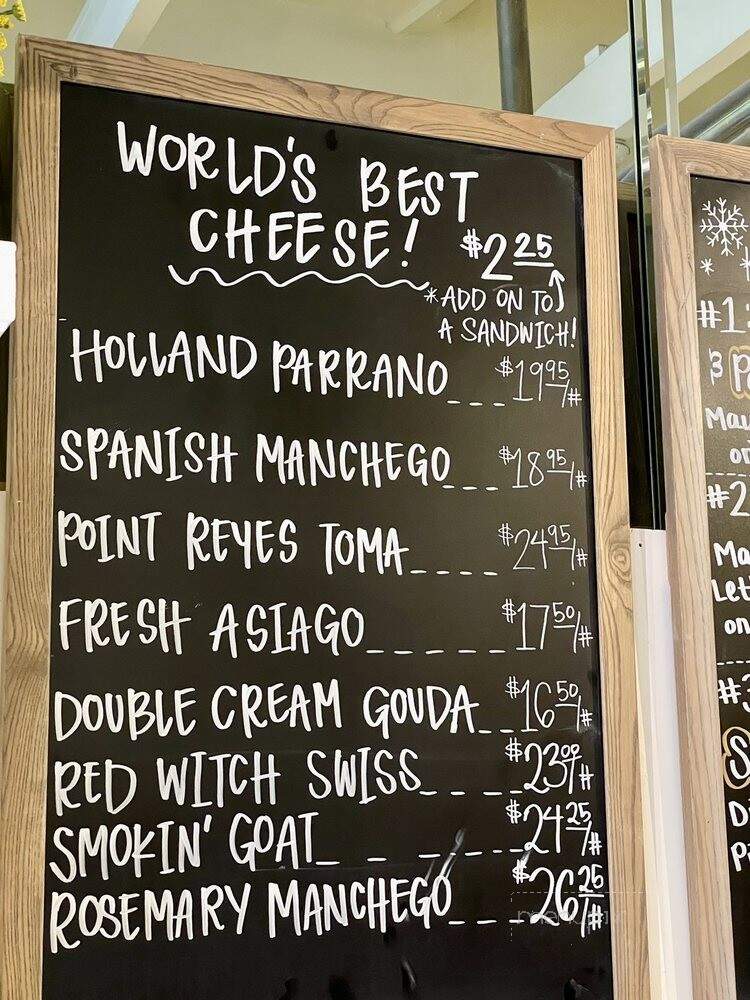 WORLD'S BEST
CHEESE! $2.25
*ADD ON TO
A SANDWICH!
HOLLAND PARRANO___$19.95/#
SPANISH MANCHEGO___$18.95/#
POINT REYES TOMA____$24.95/#
FRESH ASIAGO_____$17.50/#
DOUBLE CREAM GOUDA__$16.50/#
RED WITCH SWISS____$23.00/#
SMOKIN' GOAT_ _ _---$24.25/#
ROSEMARY MANCHEGO___$26.25/#
#1
3 P
Mau
on
#2
Ma
Let
on
#3
S
D